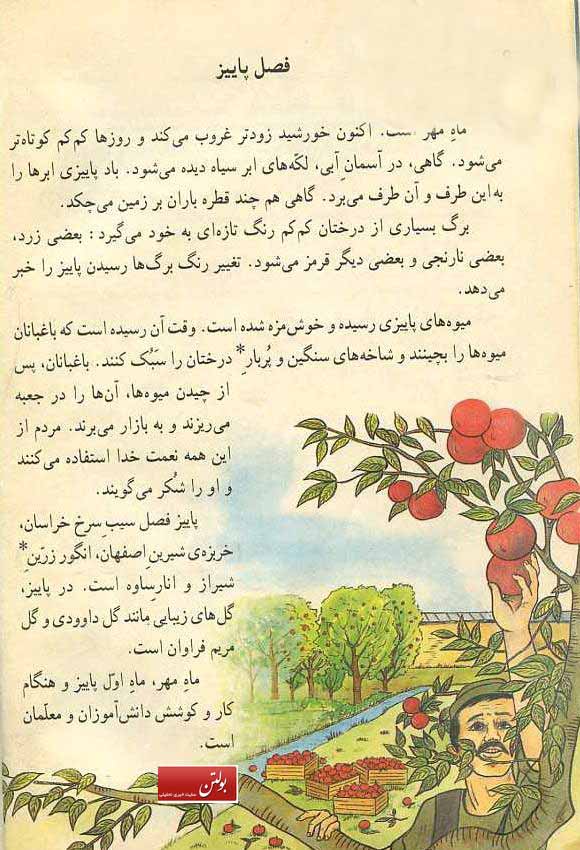 فصل پاییز
ماهِ مهر است. اکنون خورشید زودتر غروب می‌کند و روزها کم‌کم کوتاه‌تر
می‌شود. گاهی، در آسمانِ آبی، لکّه‌های ابر سیاه دیده می‌شود. باد پاییزی ابرها را
به این طرف و آن طرف می‌برد. گاهی هم چند قطره باران بر زمین می‌چکد.
برگ بسیاری از درختان کم‌کم رنگ تازه‌ای به خود می‌گیرد: بعضی زرد،
بعضی نارنجی و بعضی دیگر قرمز می‌شود. تغییر رنگ برگ‌ها رسیدن پاییز را خبر
می‌دهد.
میوه‌های پاییزی رسیده و خوش‌مزه شده است. وقت آن رسیده است که باغبانان
میوه‌ها را بچینند و شاخه‌های سنگین و پُربارِ* درختان را سَبُک کنند. باغبانان، پس
از چیدن میوه‌ها، آن‌ها را در جعبه
می‌ریزند و به بازار می‌برند. مردم از
این همه نعمت خدا استفاده می‌کنند
و او را شُکر می‌گویند.
پاییز فصل سیبِ سرخ خراسان،
خربزه‌ی شیرینِ اصفهان، انگور زرّینِ*
شیراز و انارِ ساوه است. در پاییز،
گل‌های زیبایی مانند گل داوودی و گل
مریم فراوان است.
ماهِ مهر، ماهِ اوّل پاییز و هنگام
کار و کوشش دانش‌آموزان و معلّمان
است.
بولتن
سایت خبری تحلیلی